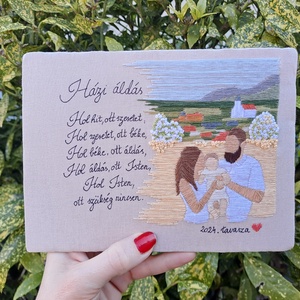 Házi áldás
Hol hit, ott szeretet,
Hol szeretet, ott béke,
Hol béke, ott áldás,
Hol áldás, ott Isten,
Hol Isten,
ott szükség nincsen.
2024. tavasza